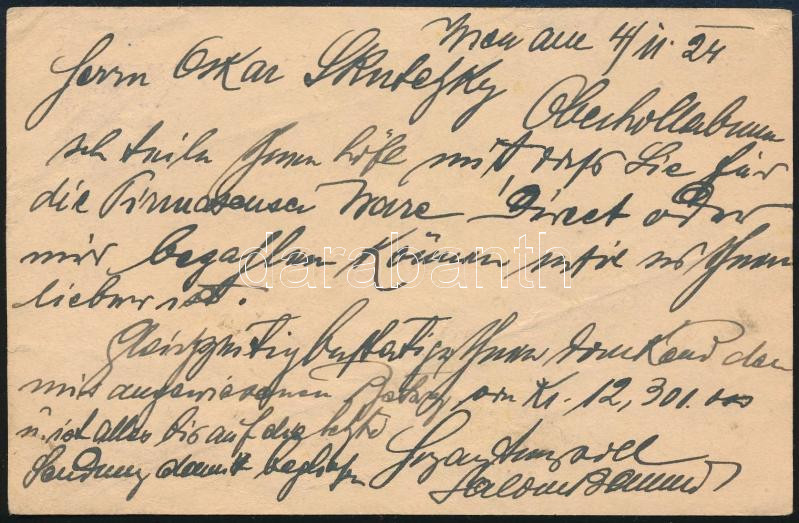 Wien am 4/II. 24
Herrn Oskar Skutetzky
Oberhollabrunn
Ich teile Ihnen höfl mit, daß Sie für
die Pirmasenser Ware Direct oder
mir bezahlen können, wie es Ihnen
lieber ist.
Gleichzeitig bestätige Ihnen dankend den
mir angewiesenen Betrag von Kr. 12,301.000
u. ist alles bis auf die letzte
Sendung damit beglichen
Hochachtungsvoll
darabanth